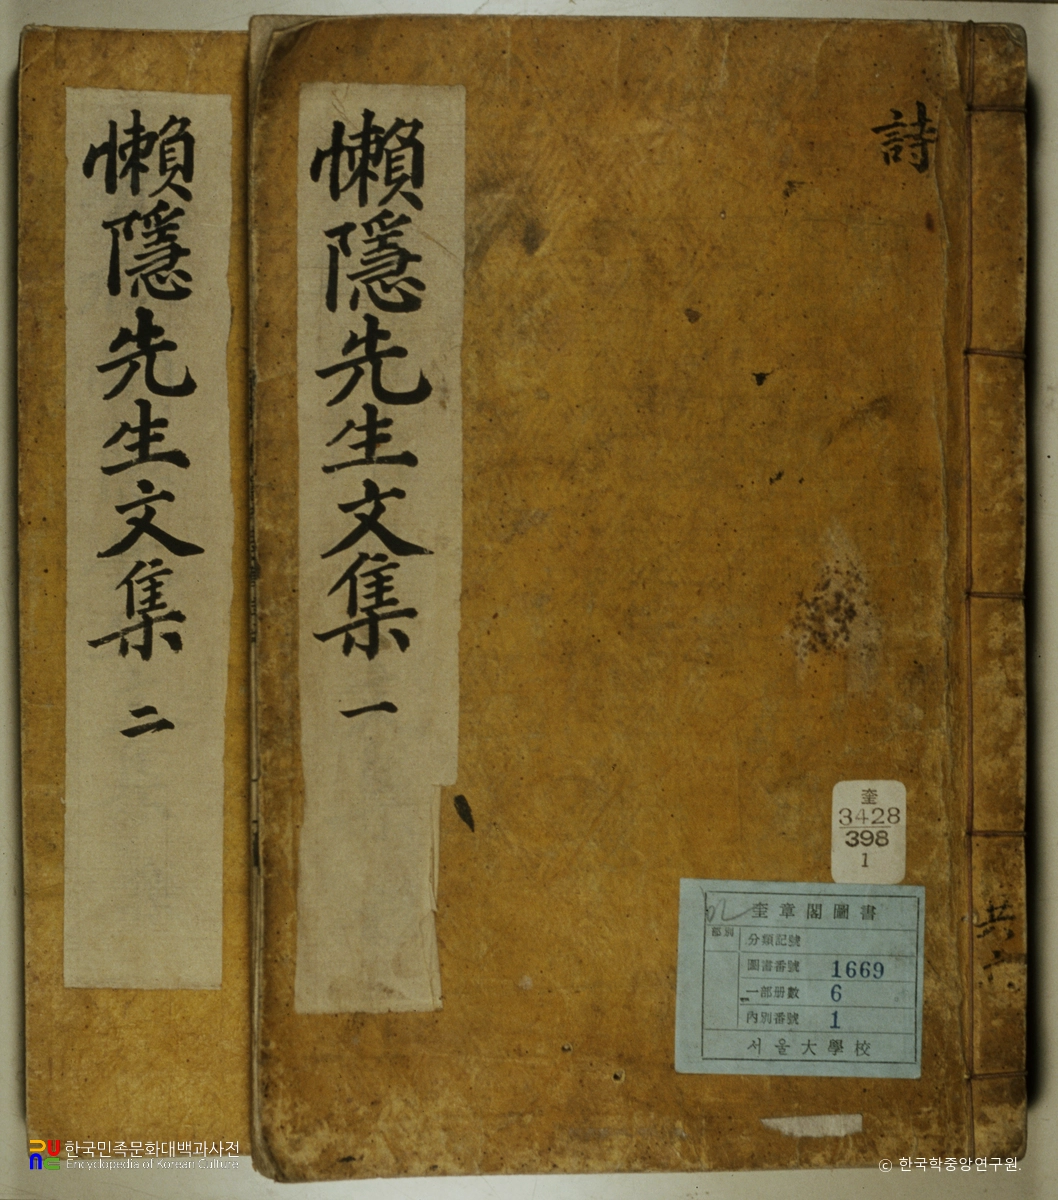 懶隱先生文集 一
懶隱先生文集 二
詩
奎
3428
398
1
奎章閣圖書
部別
分類記號
圖書番號 1669
一部册數 6
內別番號 1
서울大學校
共六
한국민족문화대백과사전
Encyclopedia of Korean Culture
© 한국학중앙연구원.